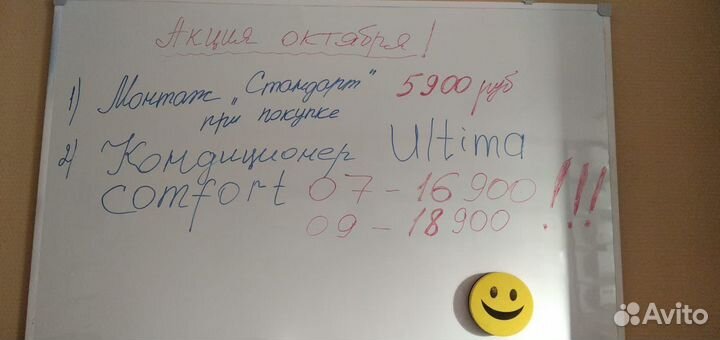 Акция октября!
1) Монтаж „Стандарт" 5900 руб
при покупке
2) Кондиционер Ultima
comfort 07 - 16 900
09 - 18 900 !!!
Avito